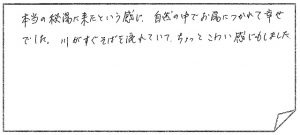 本当の秘湯に来たという感じ、自然の中でお湯につかれて幸せ
でした。川がすぐそばを流れていて、ちょっとこわい感じもしました